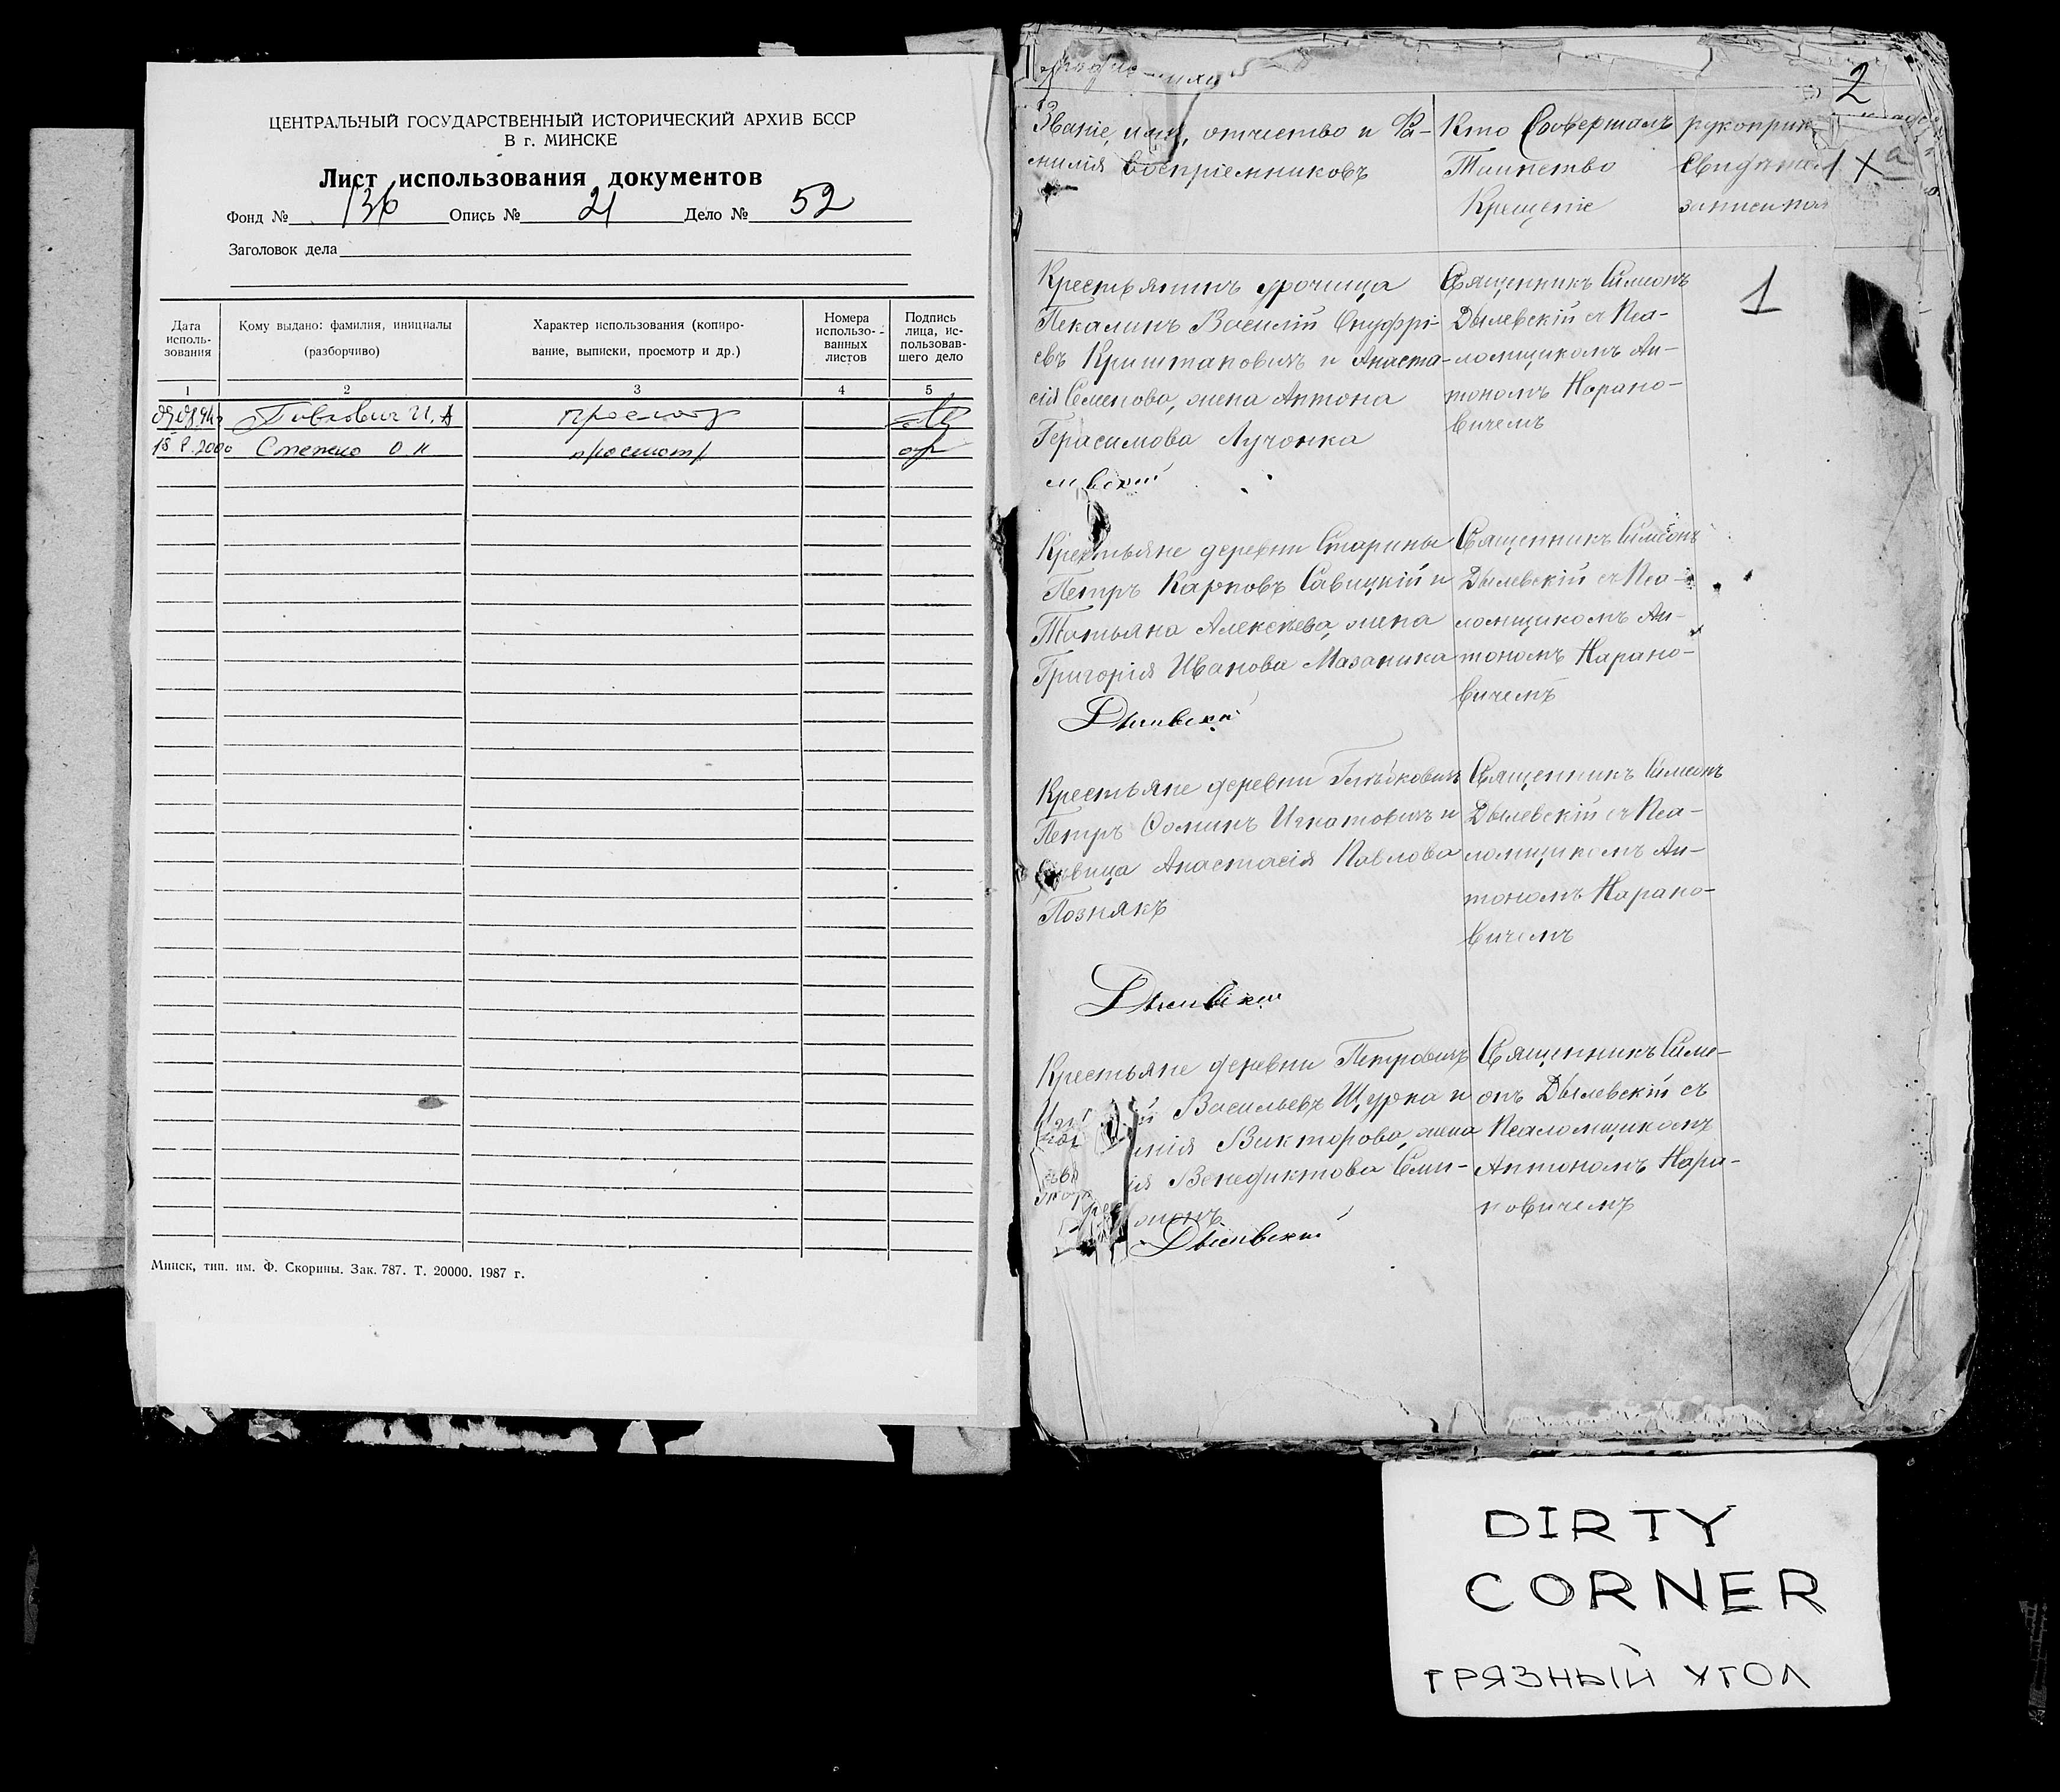 ЦЕНТРАЛЬНЫЙ ГОСУДАРСТВЕННЫЙ ИСТОРИЧЕСКИЙ АРХИВ БССР
В г. МИНСКЕ
Лист использования документов
Фонд № 136 Опись № 21 Дело № 52
Заголовок дела
Дата исполь-зования
Кому выдано: фамилия, инициалы (разборчиво)
Характер использования (копиро-вание, выписки, просмотр и др.)
Номера использо-ванных листов
Подпись лица, ис-пользовав-шего дело
1 2 3 4 5
просмотр
просмотр
Минск, тип. им. Ф. Скорины. Зак. 787. Т. 20000. 1987 г.
2
Званіе, имя, отчество и Фа-
милія воспріемниковъ
Кто Совершалъ
Таинство
Крещеніе
рукоприк
записи по
Крестьянинъ урочища
Пекалинъ Василій Онуфрі-
евъ Криштаповичъ и Анаста-
сія Семенова, жена Антона
Герасимова Лучонка
Священникъ Симеонъ
Дылевскій съ Пса-
ломщикомъ Ан-
тономъ Нарано-
вичемъ
1
Крестьяне деревни Старины
Петръ Карповъ Савицкій и
Татьяна Алексѣева, жена
Григорія Иванова Мазаника
Дылевскій
Священникъ Симеонъ
Дылевскій съ Пса-
ломщикомъ Ан-
тономъ Нарано-
вичемъ
Крестьяне деревни
Петръ Ѳоминъ Игнатовичъ и
дѣвица Анастасія Павлова
Познякъ
Дылевскій
Священникъ Симеонъ
Дылевскій съ Пса-
ломщикомъ Ан-
тономъ Нарано-
вичемъ
Крестьяне деревни Петровичъ
Васильевъ Щурка и
Викторова, жена
Венедиктова Сми-
Дылевскій
Священникъ Симе-
онъ Дылевскій съ
Псаломщикомъ
Антономъ Нара-
новичемъ
DIRTY
CORNER
ГРЯЗНЫЙ УГОЛ